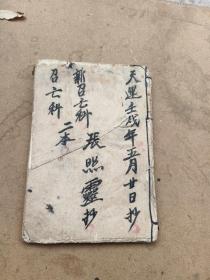 天運壬戌年五月廿日抄
張照靈抄
新召亡科
二本
召亡科